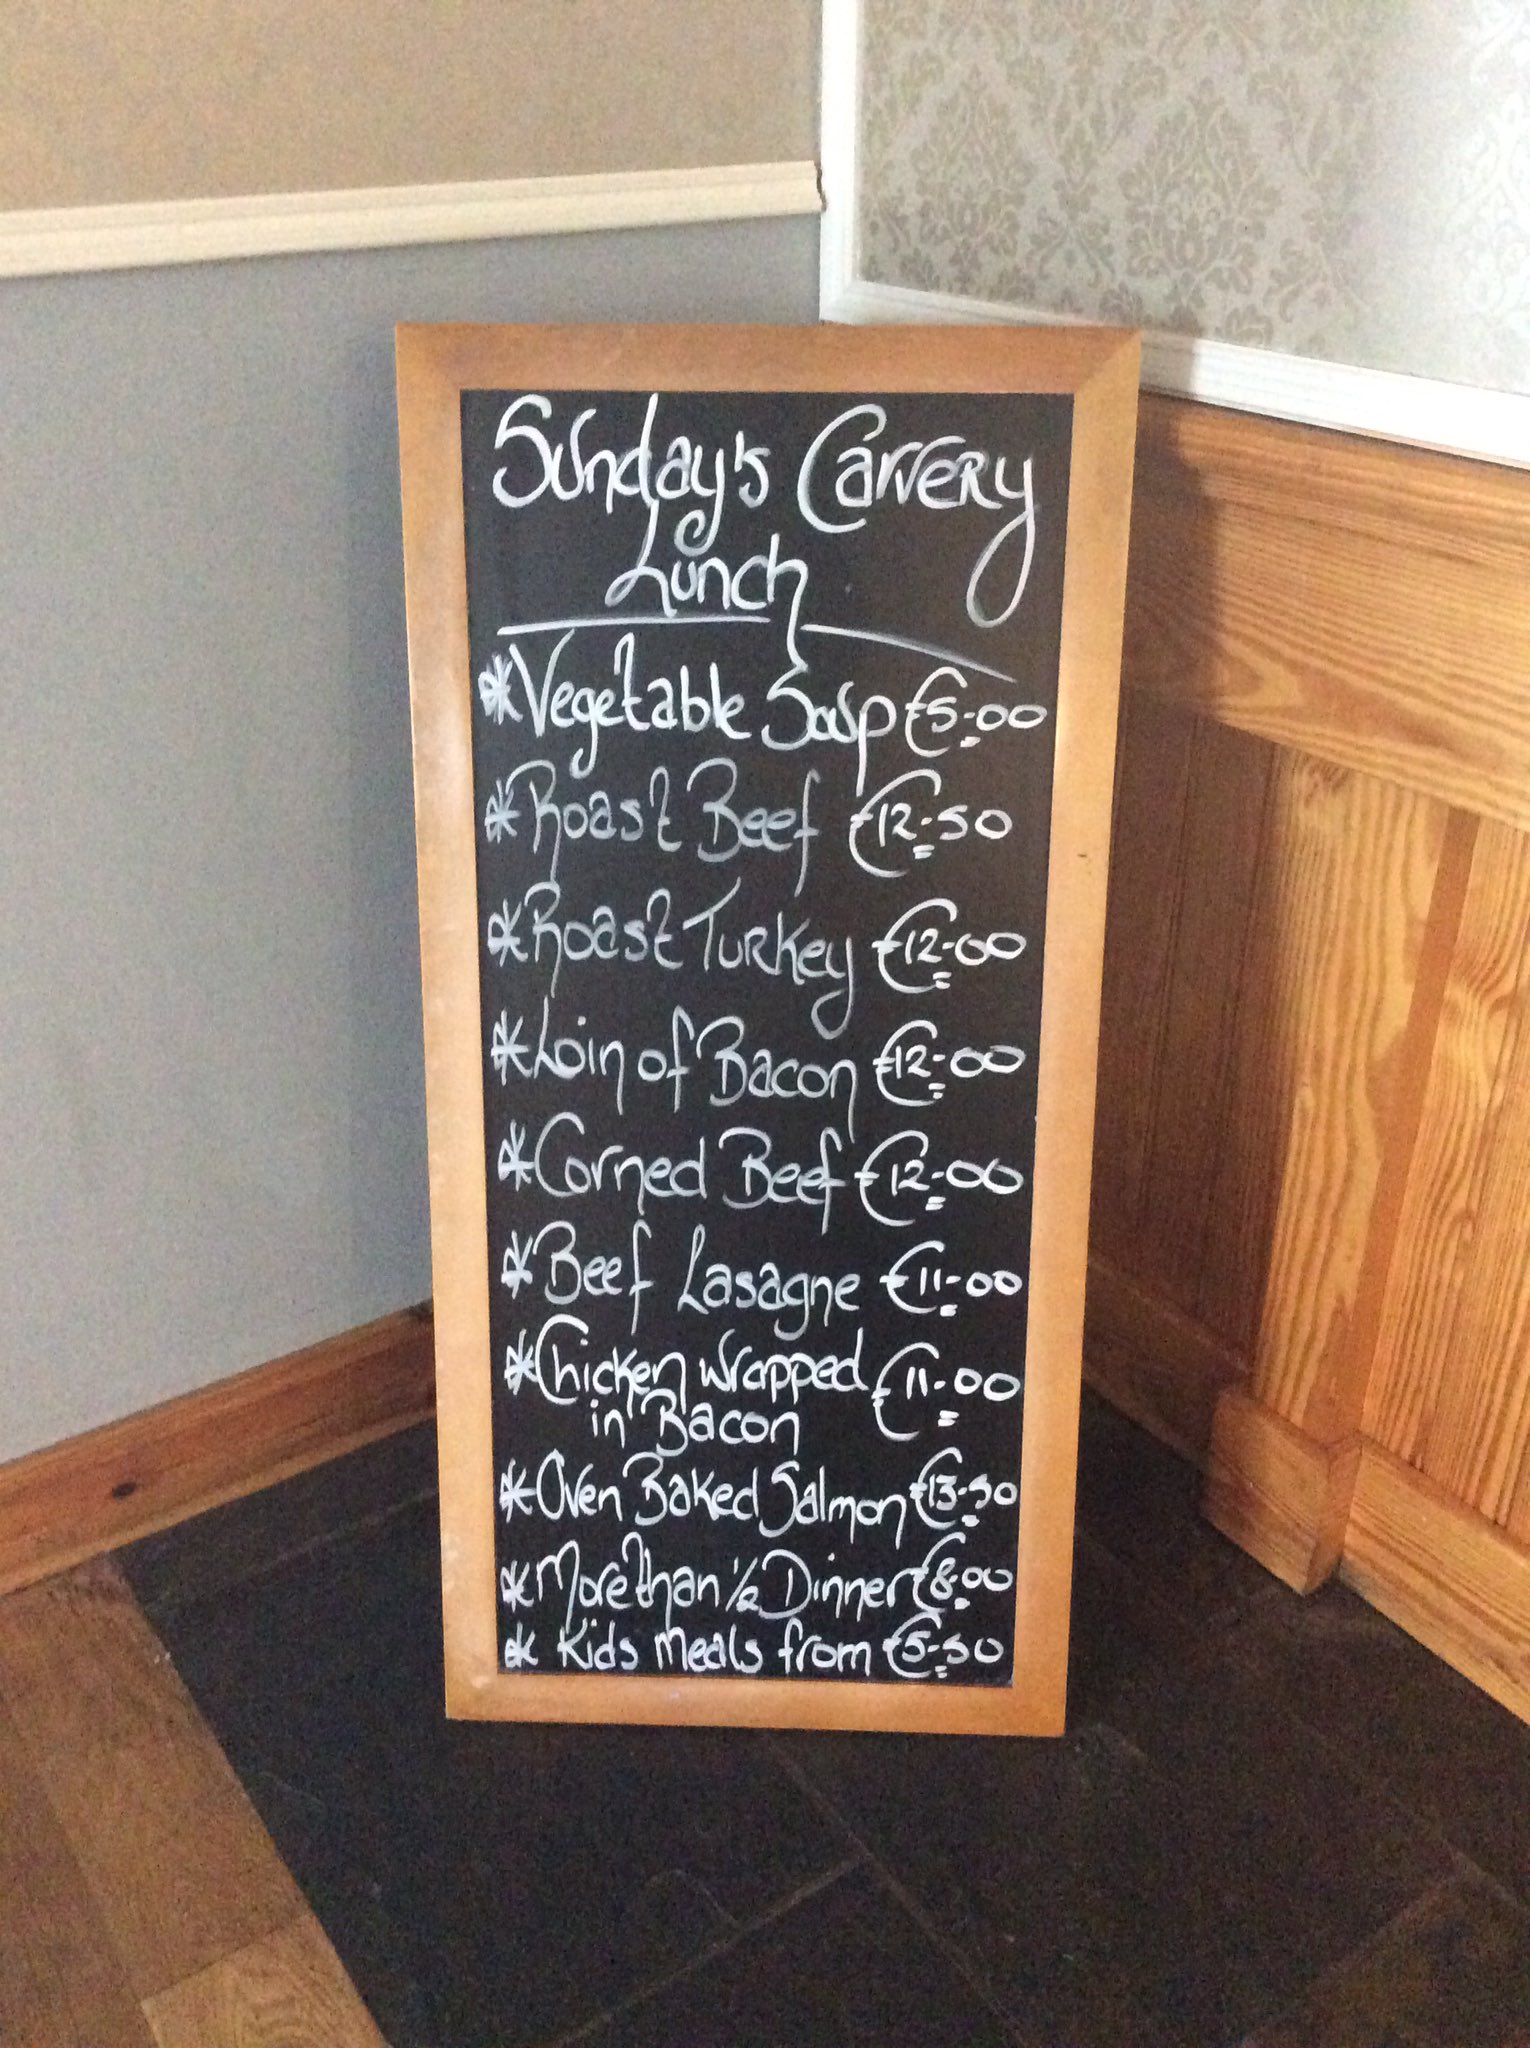 Sunday's Carvery
Lunch
*Vegetable Soup €5.00
*Roast Beef €12.50
*Roast Turkey €12.00
*Loin of Bacon €12.00
*Corned Beef €12.00
*Beef Lasagne €11.00
*Chicken wrapped €11.00
in Bacon
*Oven Baked Salmon €13.50
*More than 1/2 Dinner €8.00
* Kids meals from €5.50